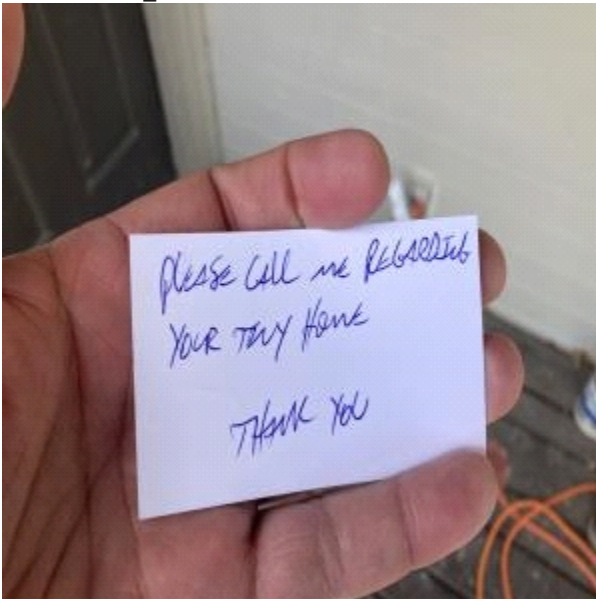 PLEASE CALL ME REGARDING
YOUR TINY HOME
THANK YOU